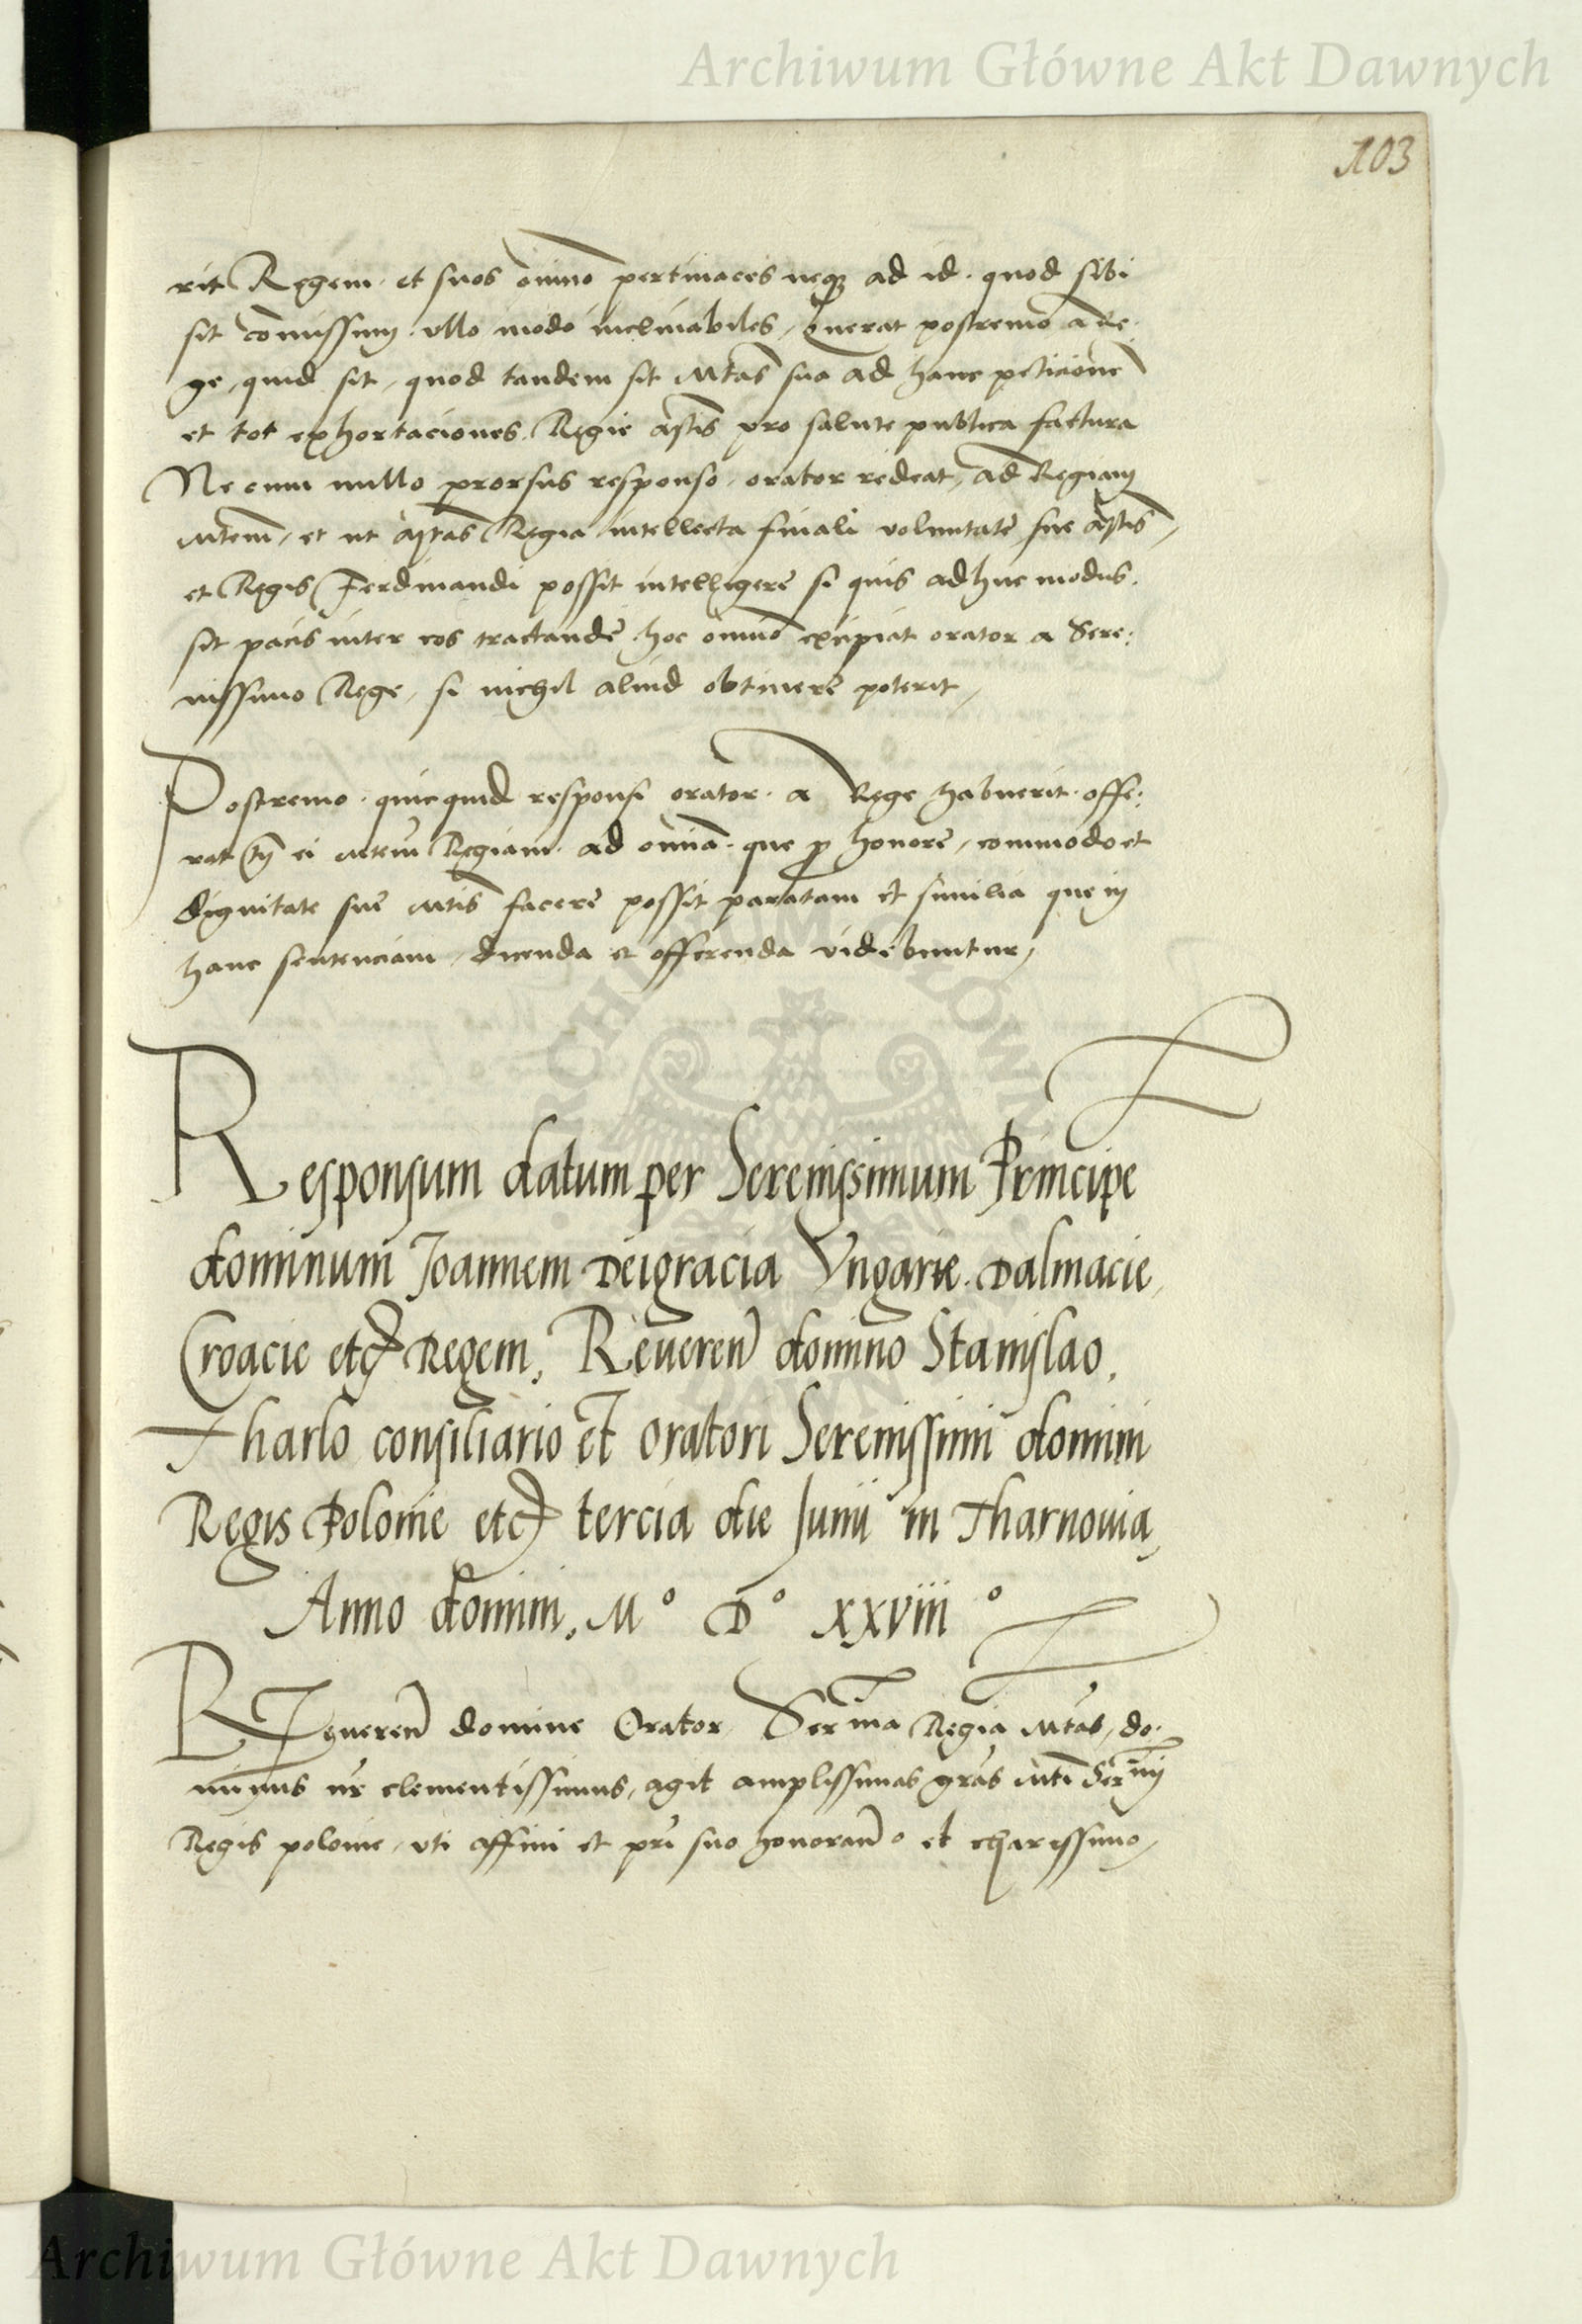 Archiwum Główne Akt Dawnych
103
rit Regem. et suos omnino pertinaces neqȝ ad id. quod sibi
sit comissum. ullo modo inclinabiles, querat postremo a Re.
ge, quid sit, quod tandem sit Mtas sua ad hanc peticione
et tot exhortaciones. Regie Mtis pro salute publica factura
Ne cum nullo prorsus responso, orator redeat, ad Regiam
Mtem, et ut Mtas Regia intellecta finali voluntate sue Mtis,
et Regis Ferdinandi possit intelligere si quis adhuc modus.
sit pacis inter eos tractande hoc omnino excipiat orator a Sere:
nissimo Rege, si nichil aliud obtinere poterit,
Postremo. quicquid responsi orator. a Rege habuerit. offe:
rat ei Mtem Regiam. ad omnia. que p honore, commodo et
dignitate sue Mtis facere possit paratam et similia que in
hanc sentenciam, dicenda et offerenda videbuntur,
Responsum datum per Serenissimum Principe
dominum Joannem Dei gracia Vngarie. Dalmacie,
Croacie etc Regem, Reueren domino Stanislao,
Tharlo consiliario et oratori Serenissimi domini
Regis Polonie etc tercia die Junii in Tharnouia,
Anno domini, Mº Dº xxviiiº
Reueren domine Orator. Serma Regia Mtas, do:
minus nr clementissimus, agit amplissimas gras Mti Sermi
Regis polonie, uti affini et pri suo honorano et charissimo,
ARCHIWUM GŁÓWNE AKT DAWNYCH
Archiwum Główne Akt Dawnych